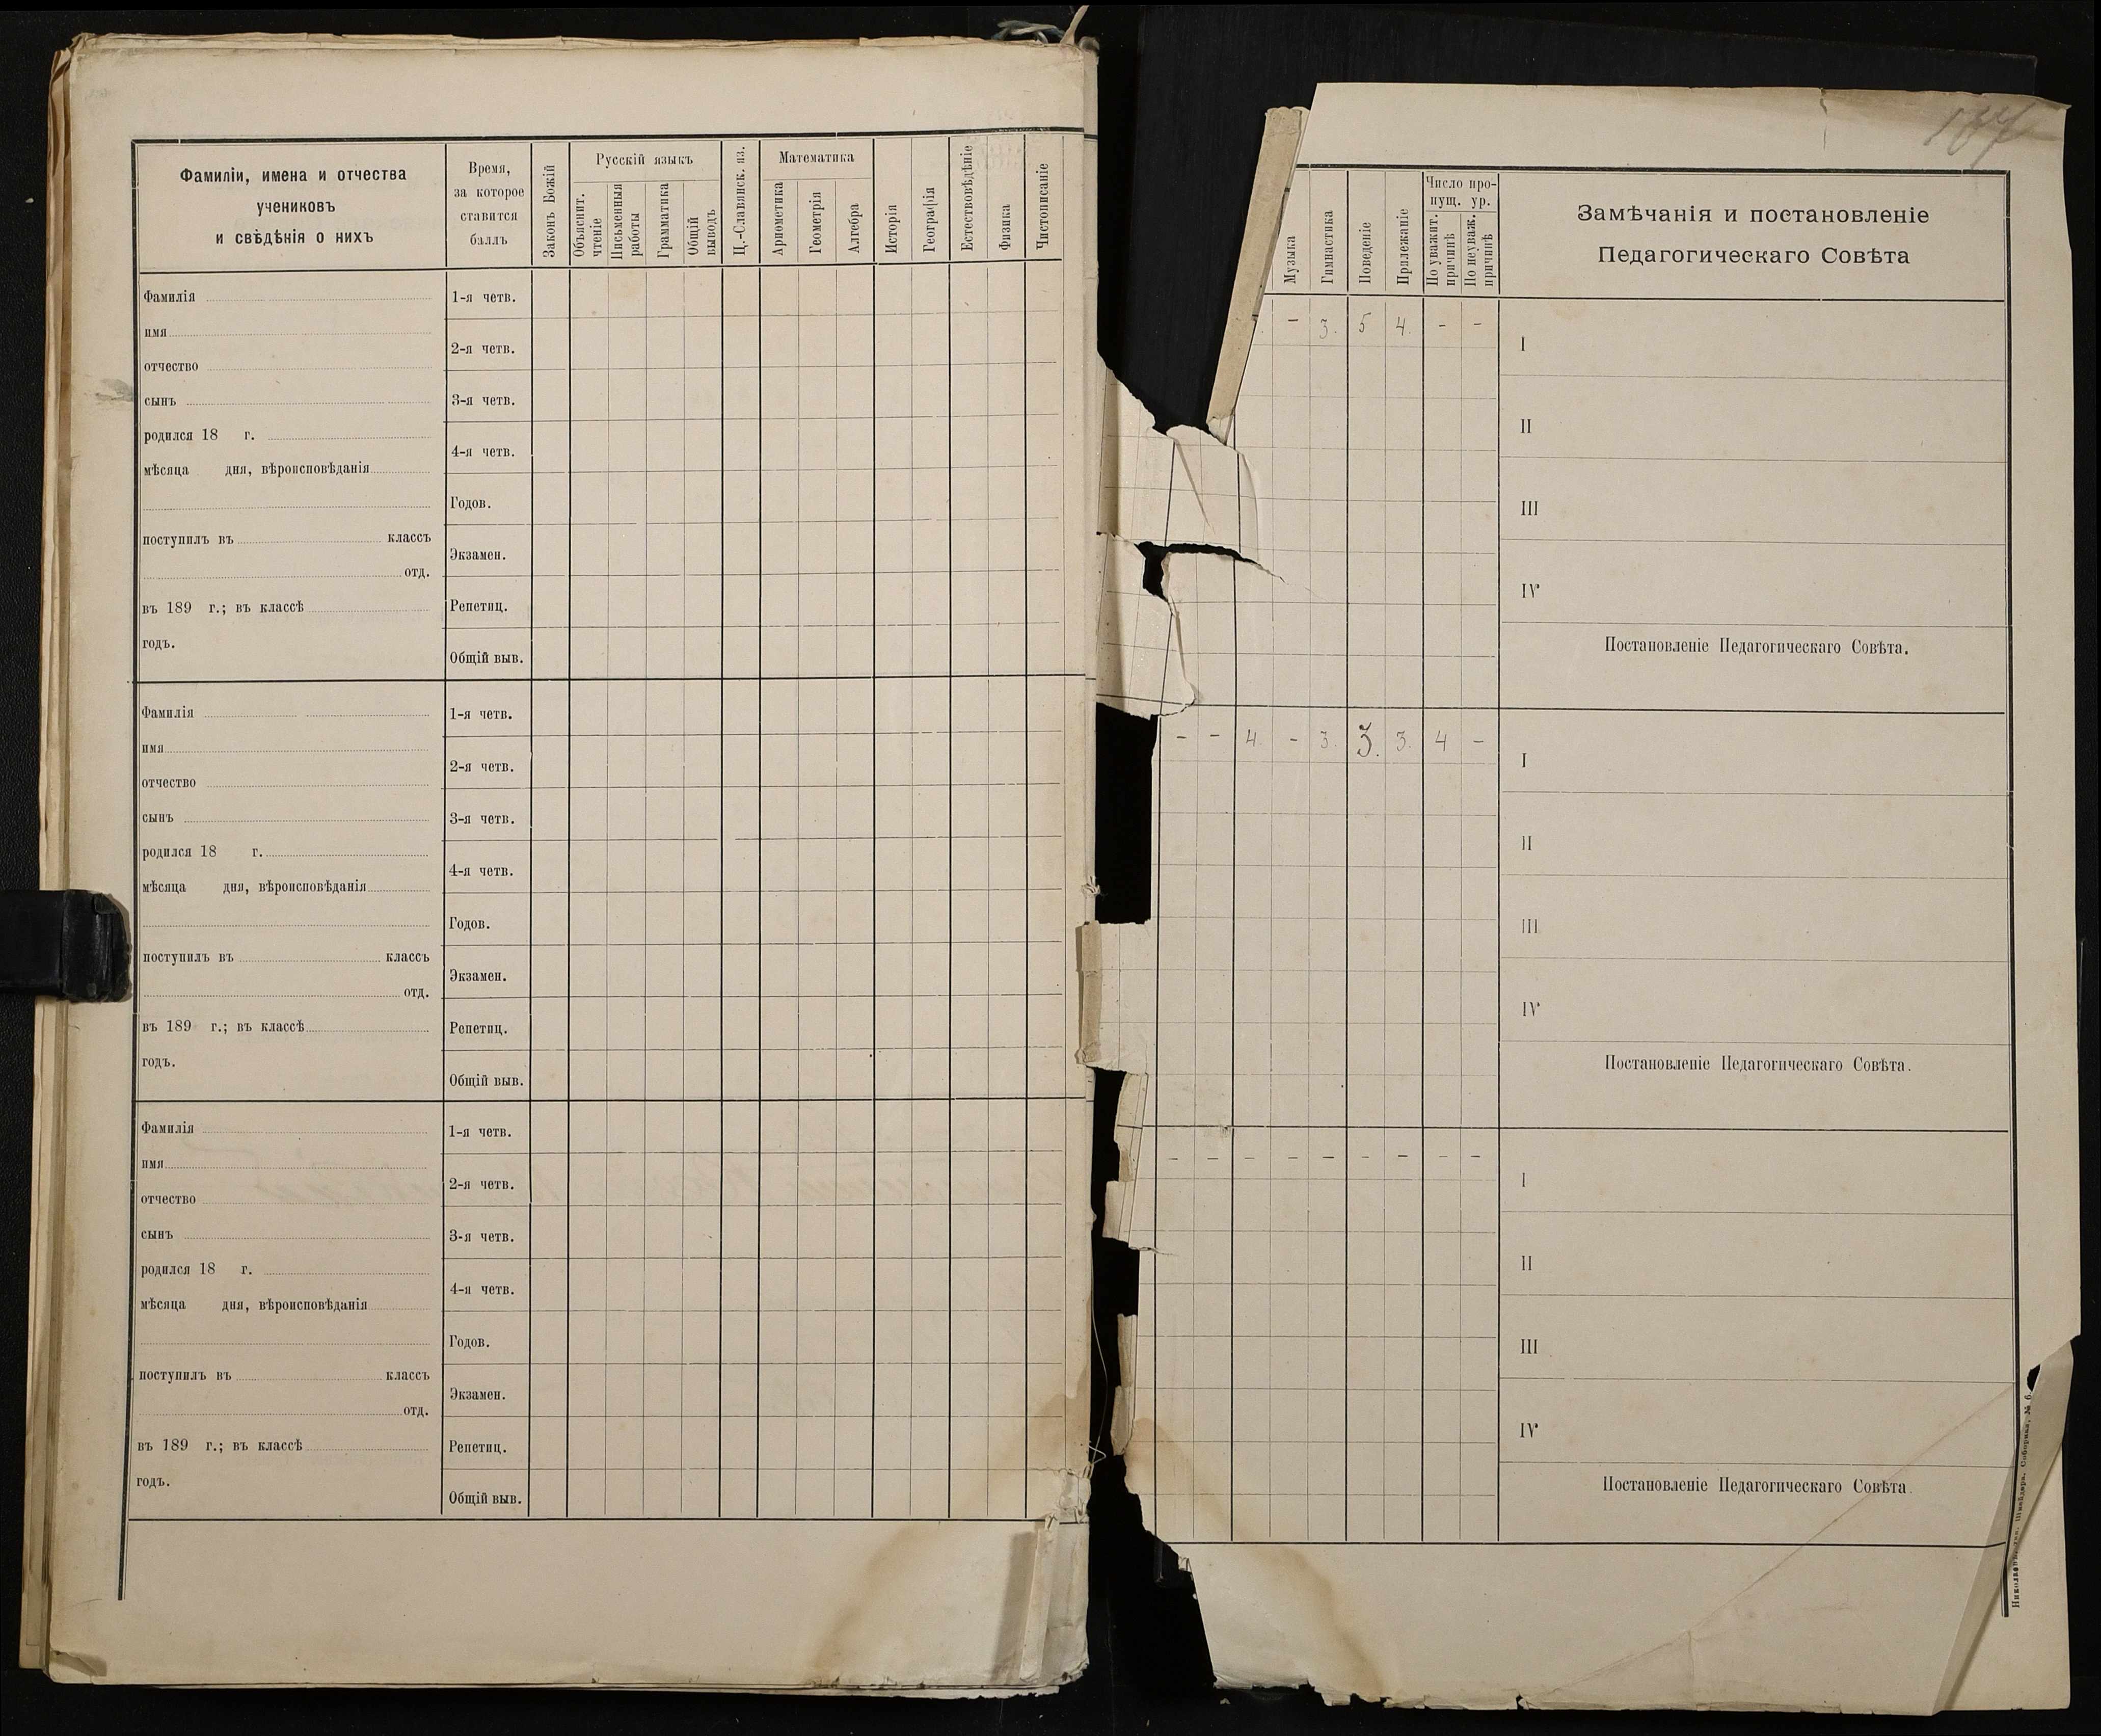 Фамиліи, имена и отчества
учениковъ
и свѣдѣнія о нихъ
Время,
за которое
ставится
баллъ
Законъ Божій
Русскій языкъ
Объяснит. чтеніе
Письменныя работы
Грамматика
Общій выводъ
Ц.-Славянск. яз.
Математика
Ариѳметика
Геометрія
Алгебра
Исторія
Географія
Естествовѣдѣніе
Физика
Чистописаніе
Фамилія
имя
отчество
сынъ
родился 18 г.
мѣсяца дня, вѣроисповѣданія
поступилъ въ классъ
отд.
въ 189 г.; въ классѣ
годъ.
1-я четв.
2-я четв.
3-я четв.
4-я четв.
Годов.
Экзамен.
Репетиц.
Общій выв.
Фамилія
имя
отчество
сынъ
родился 18 г.
мѣсяца дня, вѣроисповѣданія
поступилъ въ классъ
отд.
въ 189 г.; въ классѣ
годъ.
1-я четв.
2-я четв.
3-я четв.
4-я четв.
Годов.
Экзамен.
Репетиц.
Общій выв.
Фамилія
имя
отчество
сынъ
родился 18 г.
мѣсяца дня, вѣроисповѣданія
поступилъ въ классъ
отд.
въ 189 г.; въ классѣ
годъ.
1-я четв.
2-я четв.
3-я четв.
4-я четв.
Годов.
Экзамен.
Репетиц.
Общій выв.
Музыка
Гимнастика
Поведеніе
Прилежаніе
Число про-
пущ. ур.
По уважит. причинѣ
По неуваж. причинѣ
Замѣчанія и постановленіе
Педагогическаго Совѣта
- 3. 5 4. - -
I
II
III
IV
Постановленіе Педагогическаго Совѣта.
- - 4. - 3. 3. 3. 4 -
I
II
III
IV
Постановленіе Педагогическаго Совѣта.
- - - - - - - - -
I
II
III
IV
Постановленіе Педагогическаго Совѣта.